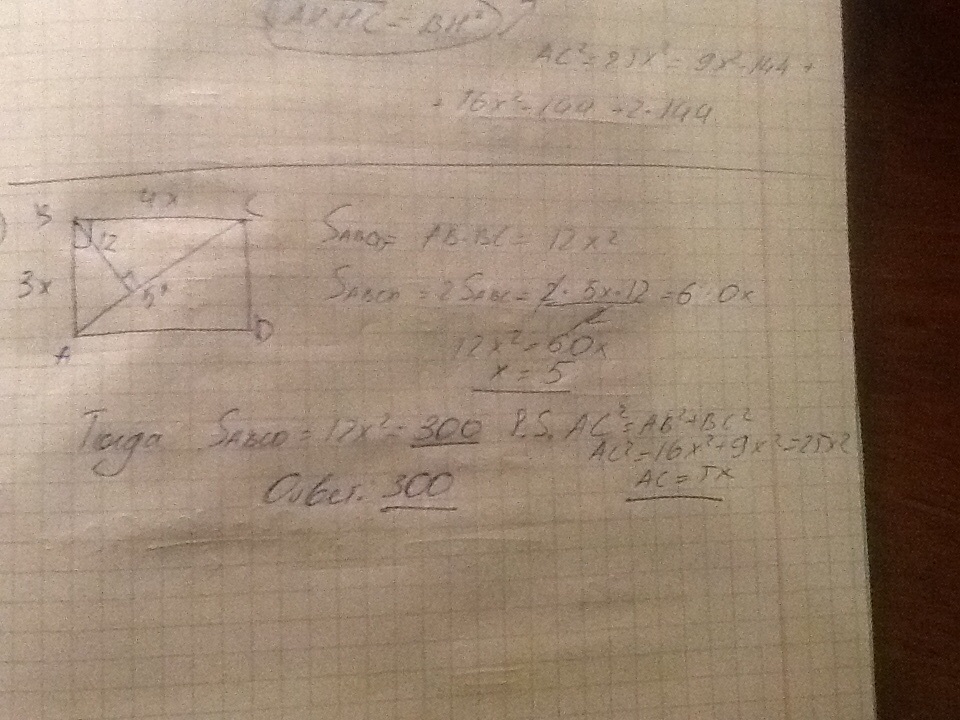 AH·HC = BH²
AC² = 25x² = 9x² - 144 +
+ 16x² - 144 + 2·144
B 4x C
12
3x
5x
A D
S_ABCD = AB·BC = 12x²
S_ABCD = 2S_ABC = 2·5x·12 / 2 = 60x
12x² = 60x
x = 5
Тогда S_ABCD = 12x² = 300
P.S. AC² = AB² + BC²
AC² = 16x² + 9x² = 25x²
AC = 5x
Ответ: 300